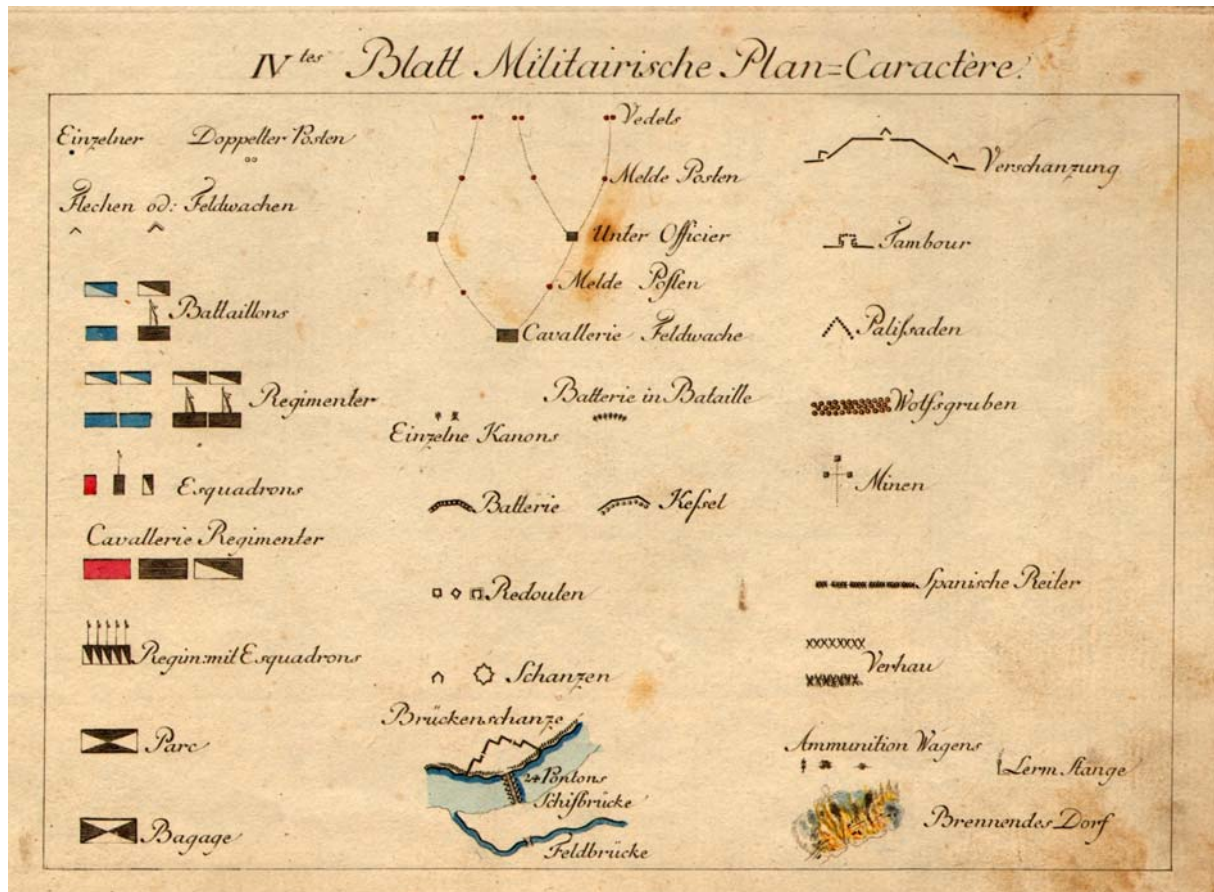 IVtes Blatt Militairische Plan=Caractère.
Einzelner Doppelter Posten
Flechen od: Feldwachen
Battaillons
Regimenter
Esquadrons
Cavallerie Regimenter
Regim: mit Esquadrons
Parc
Bagage
Vedels
Melde Posten
Unter Officier
Melde Posten
Cavallerie Feldwache
Batterie in Bataille
Einzelne Kanons
Batterie Keſsel
Redouten
Schanzen
Brückenschanze
24 Pontons
Schifbrücke
Feldbrücke
Verschanzung
Tambour
Paliſsaden
Wolfsgruben
Minen
Spanische Reiter
Verhau
Ammunition Wagens
Lerm Stange
Brennendes Dorf